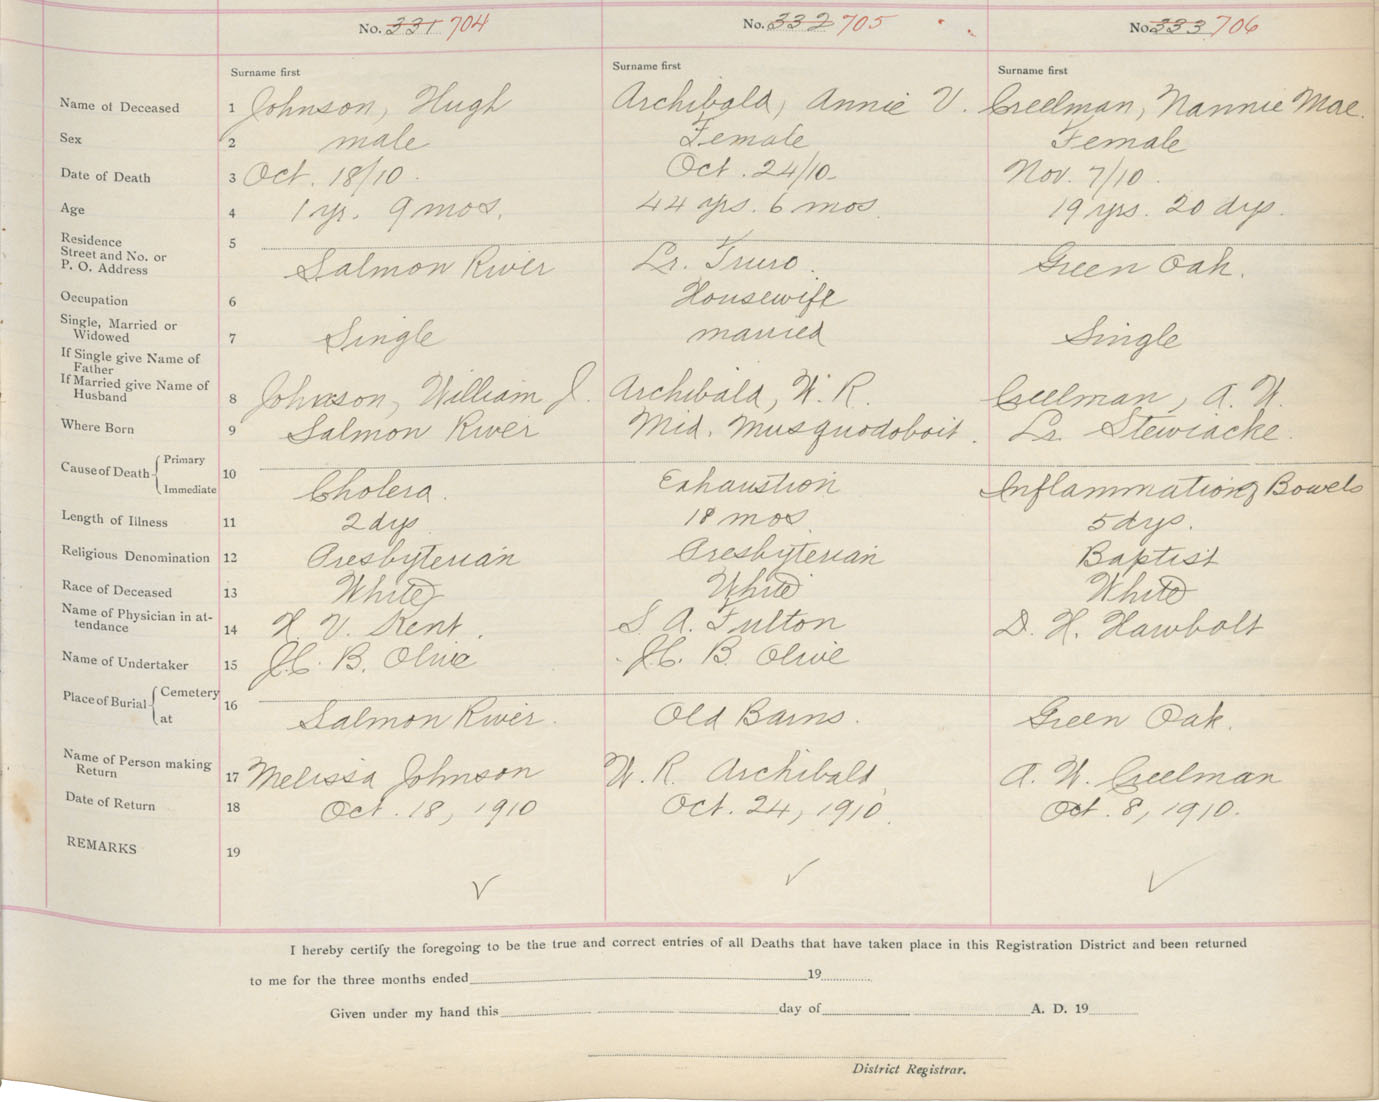 No. 331 704 No. 332 705 No. 333 706
Surname first Surname first Surname first
Name of Deceased 1 Johnson, Hugh Archibald, Annie V. Creelman, Nannie Mae.
Sex 2 male Female Female
Date of Death 3 Oct. 18/10. Oct. 24/10 Nov. 7/10.
Age 4 1 yr. 9 mos. 44 yrs. 6 mos. 19 yrs. 20 dys.
Residence 5
Street and No. or
P. O. Address Salmon River Lr. Truro. Green Oak.
Occupation 6 Housewife
Single, Married or
Widowed 7 Single married Single
If Single give Name of
Father
If Married give Name of
Husband 8 Johnson, William J. Archibald, W. R. Creelman, A. W.
Where Born 9 Salmon River Mid. Musquodoboit. Lr. Stewiacke.
Cause of Death Primary 10
Immediate Cholera. Exhaustion Inflammation of Bowels
Length of Illness 11 2 dys 18 mos. 5 dys.
Religious Denomination 12 Presbyterian Presbyterian Baptist
Race of Deceased 13 White White White
Name of Physician in at-
tendance 14 H. V. Kent. S. A. Fulton D. H. Hawbolt
Name of Undertaker 15 J.C. B. Olive J.C. B. Olive
Place of Burial Cemetery 16
at Salmon River. Old Barns. Green Oak.
Name of Person making
Return 17 Melissa Johnson W. R. Archibald A. W. Creelman
Date of Return 18 Oct. 18, 1910 Oct. 24, 1910. Oct. 8, 1910.
REMARKS 19
I hereby certify the foregoing to be the true and correct entries of all Deaths that have taken place in this Registration District and been returned
to me for the three months ended 19
Given under my hand this day of A. D. 19
District Registrar.